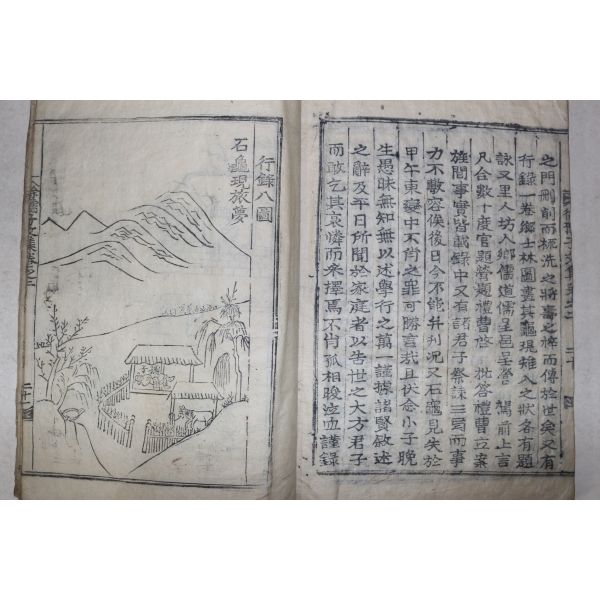 之門刪削而梳洗之將壽之梓而傳於世矣又有
行錄一卷鄉士林圖畫其龜現雉入之狀各有題
詠又里人坊人鄉儒道儒呈邑呈營 駕前上言
凡合數十度官題營題禮曹 批答禮曹立案
旌閭事實皆載錄中又有諸君子祭誄三 而事
力不敷容俟後日今不能幷刋况又石龜見失於
甲午東變中不肖之罪可勝言哉且伏念小子晚
生愚昧無知無以述學行之萬一謹據諸賢敘述
之辭及平日所聞於家庭者以告世之大方君子
而敢乞其哀憐而來擇焉不肖孤相晙泣血謹錄
行錄八圖
石龜現旅夢